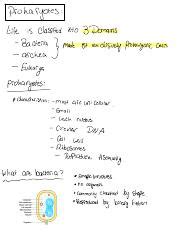 Prokaryotes
Life is Classified into 3 Domains
- Bacteria
- archea
- Eukarya
made of exclusively Prokaryotic Cells
prokaryotes:
Characteristics:
- most are unicellular
- Small
- Lack nucleus
- Circular DNA
- Cell wall
- Ribosomes
What are bacteria?
• Simple structures
• no organells
• Commonly classified by shape
• Reproduced by binary fission